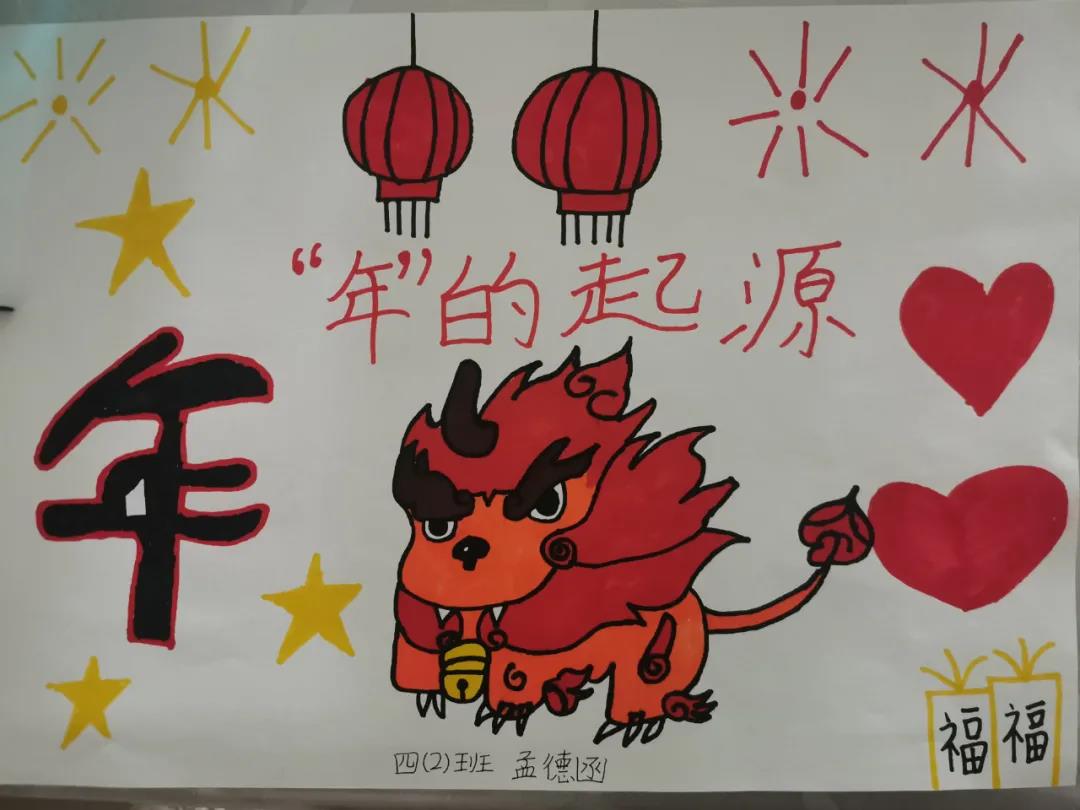 “年”的起源
年
福 福
四(2)班 孟德函